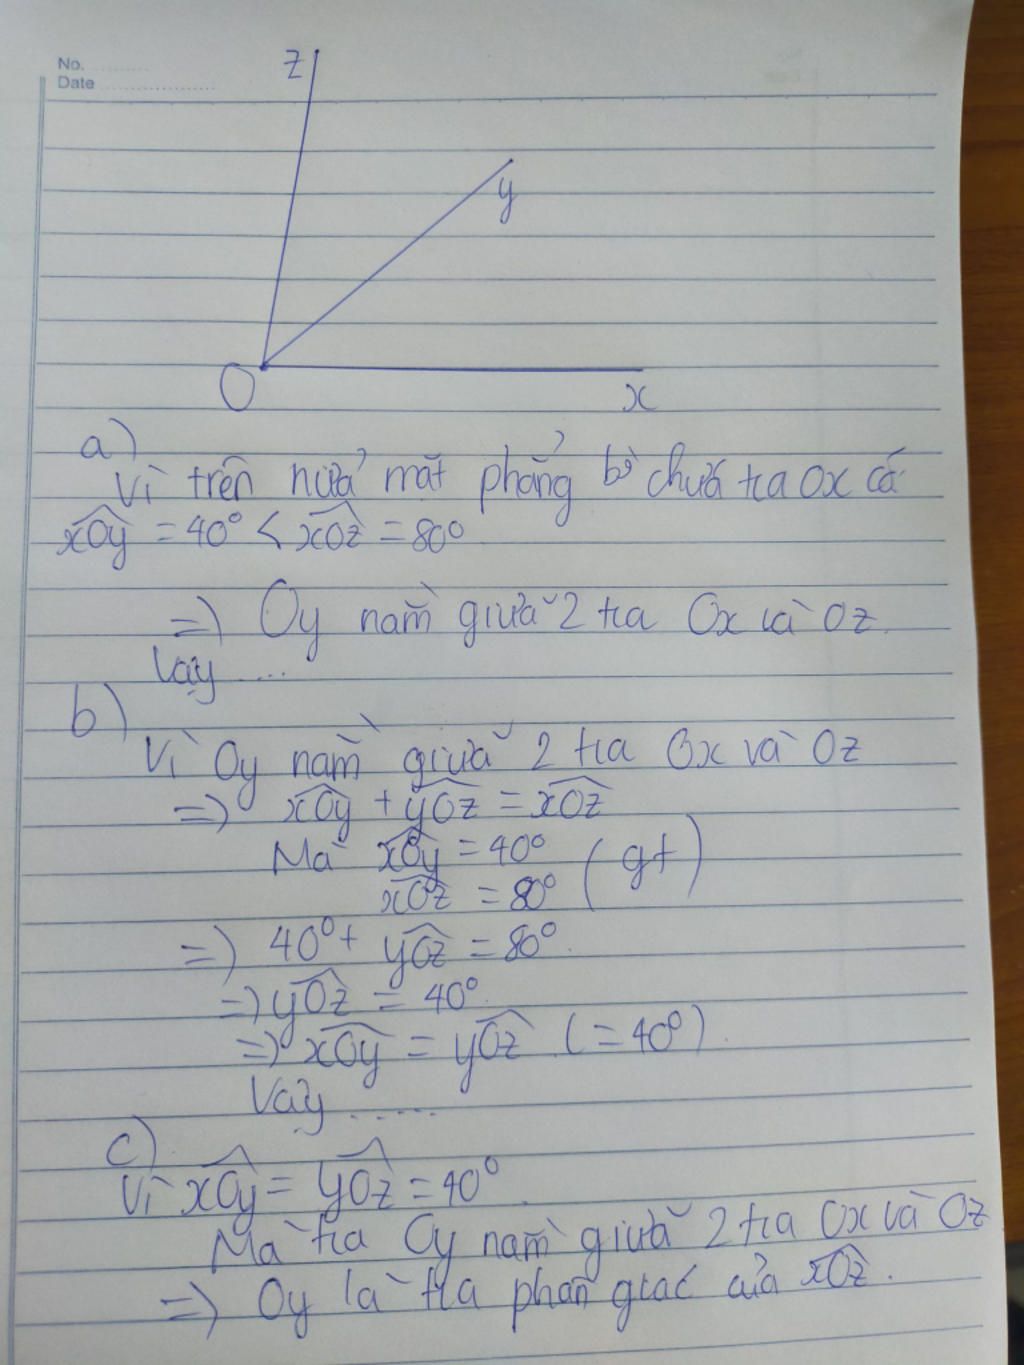 No. ............
Date .....................
z
y
O
x
a)
Vì trên nửa mặt phẳng bờ chứa tia Ox có
xÔy = 40° < xÔz = 80°
=> Oy nằm giữa 2 tia Ox và Oz.
Vậy ....
b)
Vì Oy nằm giữa 2 tia Ox và Oz
=> xÔy + yÔz = xÔz
Mà xÔy = 40° (gt)
xÔz = 80°
=> 40° + yÔz = 80°.
=> yÔz = 40°.
=> xÔy = yÔz (= 40°).
Vậy ......
c)
Vì xÔy = yÔz = 40°.
Mà tia Oy nằm giữa 2 tia Ox và Oz
=> Oy là tia phân giác của xÔz.